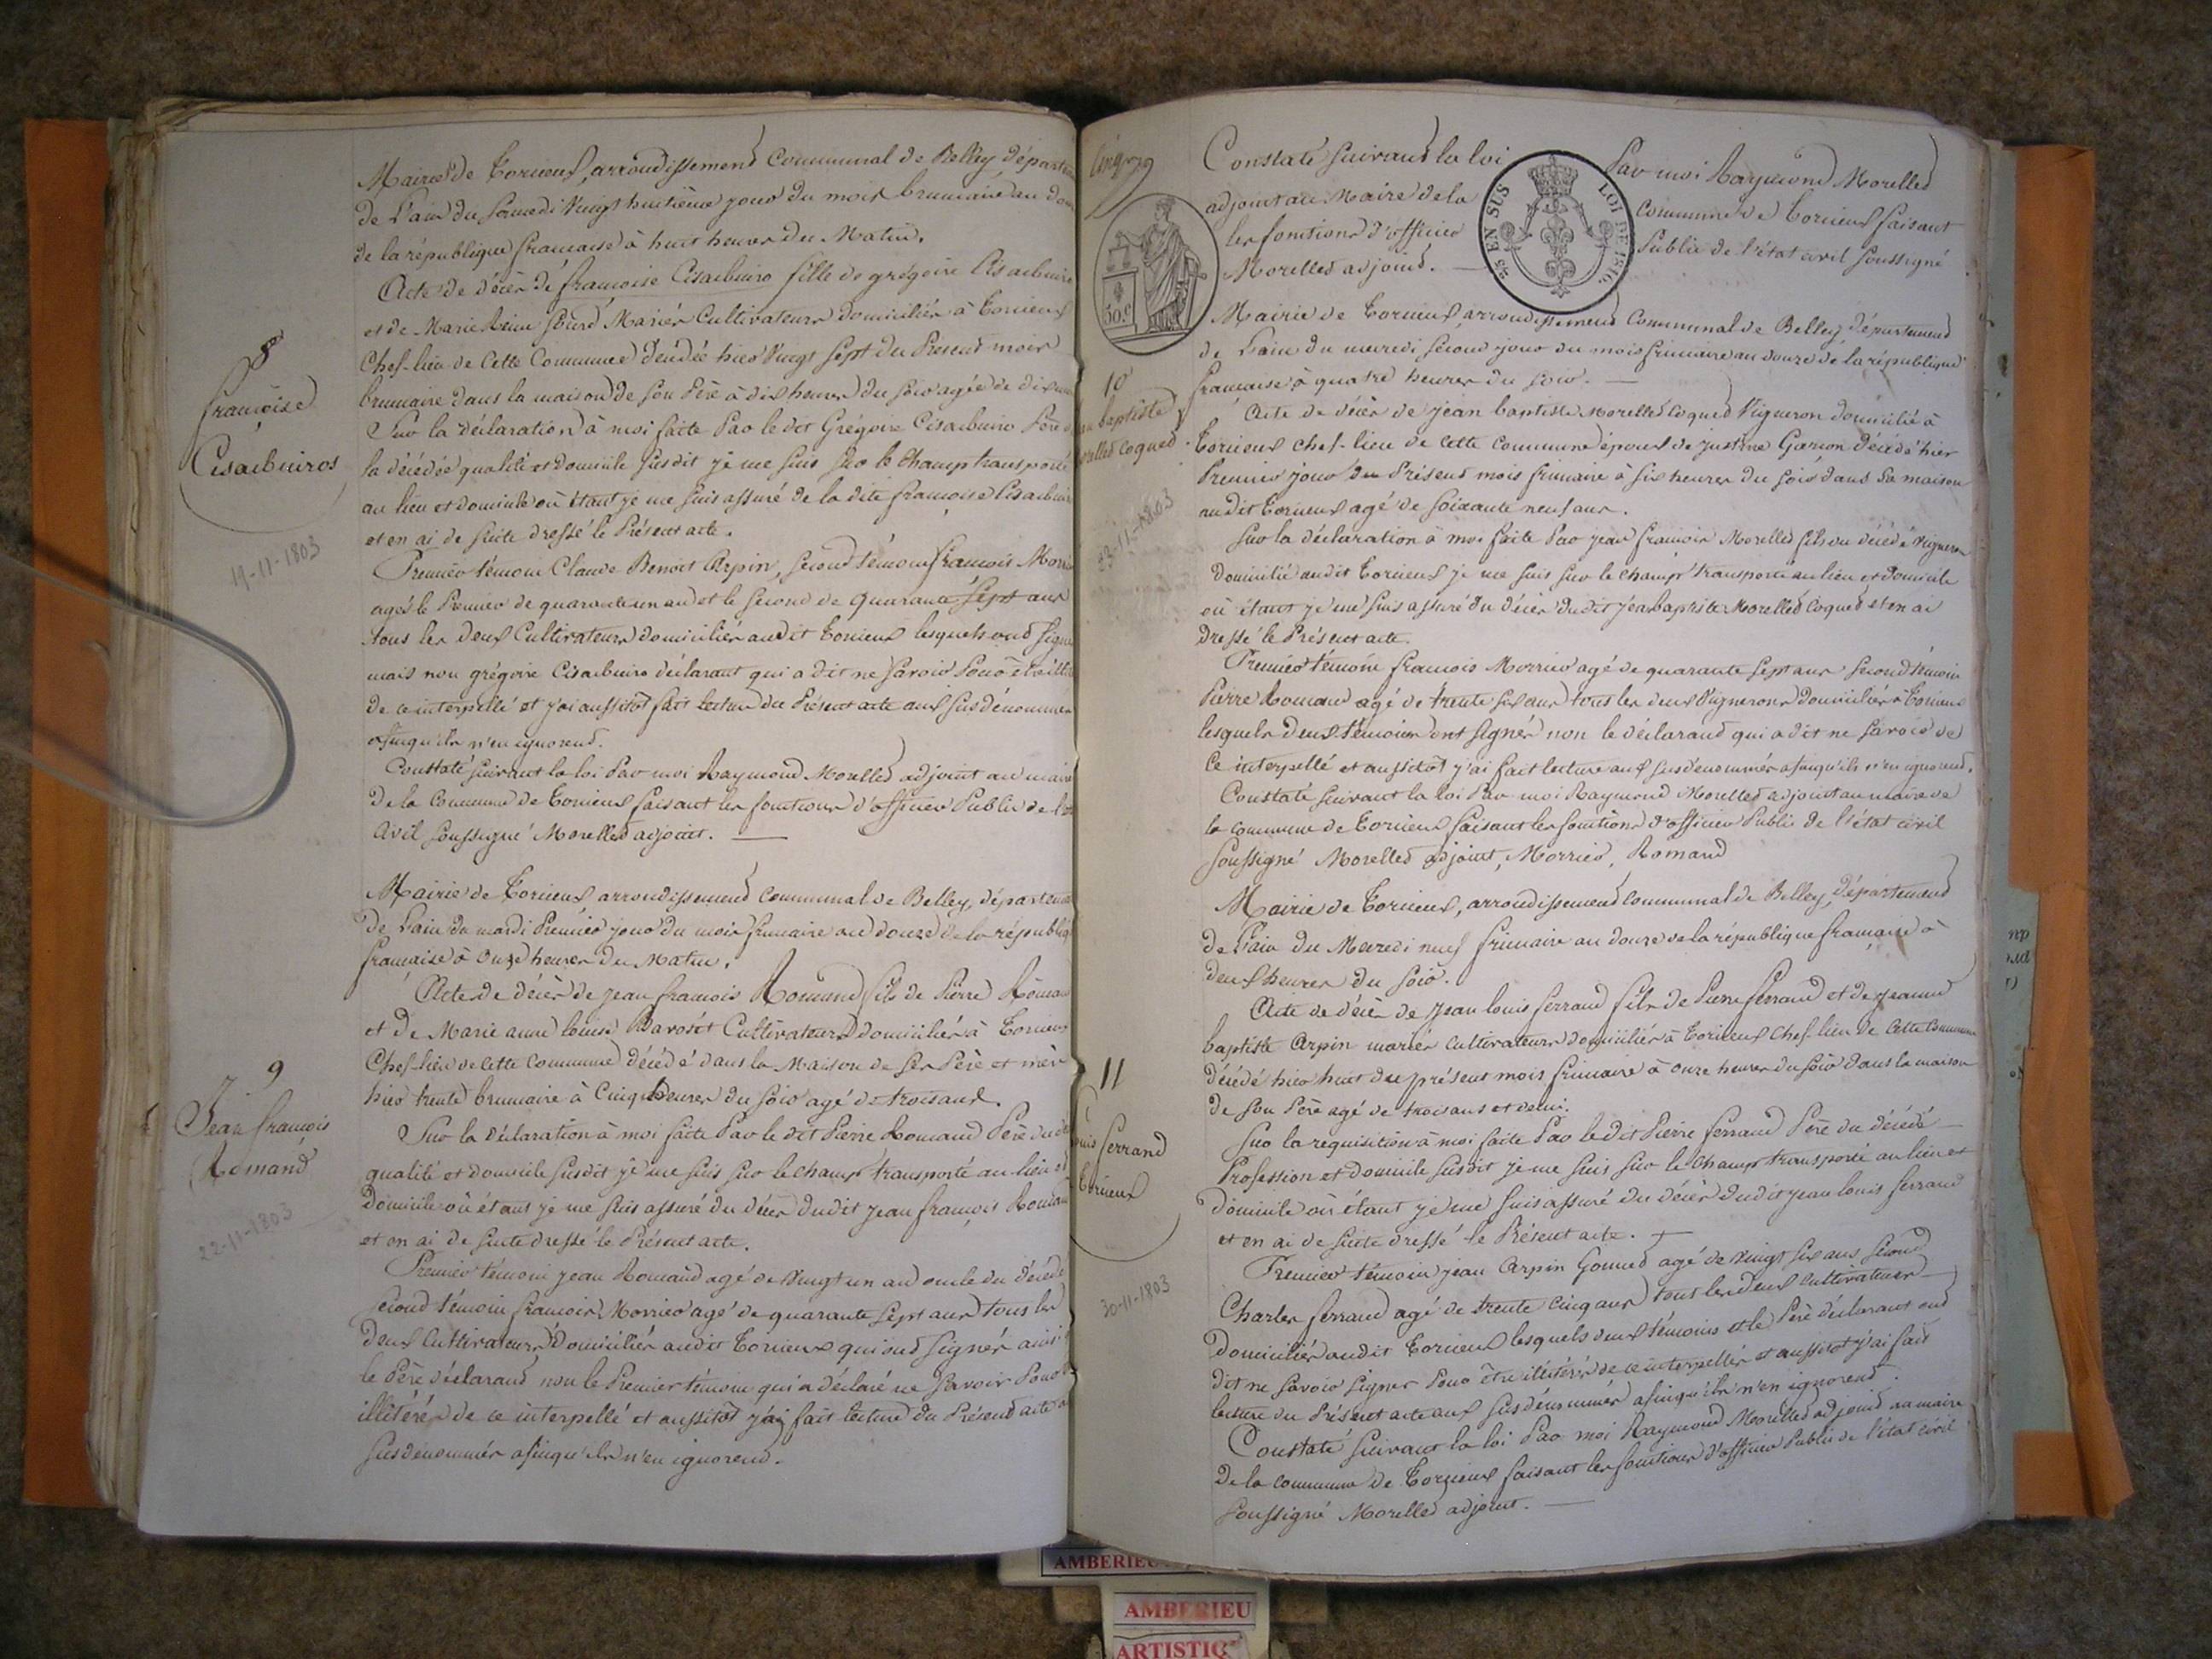 Mairie de Torcieux, arrondissement Communal de Belley, départem
de L'ain du Samedi Vingt huitième jour du mois brumaire an dou
de la république française à huit heures du Matin.
Acte de décès de françoise Cisarbuiro fille de grégoire Cisarbuiro
et de Marie Reine Mariés Cultivateurs domiciliés à Torcieux
Chef-lieu de Cette Commune décédée hier Vingt Sept du Present mois
brumaire dans la maison de Son Père à dix heures du Soir agée de
Sur la déclaration à moi faite Par le dit Grégoire Cisarbuiro Père d
la décédée qualité et domicile Susdit je me Suis Sur le Champ transporté
au lieu et domicile où étant je me Suis assuré de la dite françoise Cisarbuiro
et en ai de Suite dressé le Présent acte.
Premier témoin Claude Benoit Arpin, Second témoin françois Morri
agés le Premier de quarante un an et le Second de quarante Sept ans
tous les deux Cultivateurs domiciliés audit Torcieux lesquels ont Signé
mais non grégoire Cisarbuiro déclarant qui a dit ne Savoir Pour être illit
de ce interpellé et j'ai aussitôt fait lecture du Présent acte aux Susdénommés
afinqu'ils n'en ignorend.
Constaté Suivant la loi Par moi Raymond Morelled adjoint au maire
de la Commune de Torcieux faisant les fonctions d'officier Public de l'é
civil Soussigné Morelled adjoint. —
8
françoise
Cisarbuiros
19-11-1803
Mairie de Torcieux arrondissement communal de Belley, départem
de Lain du mardi Premier jour du mois frimaire an douze de la républiq
française à Onze heures du Matin.
Acte de décès de jean françois Romand fils de Pierre Roman
et de Marie anne louise Cultivateurs domiciliés à Torcieux
Chef-lieu de Cette Commune décédé dans la Maison de Ses Père et mère
hier trente brumaire à Cinq heures du Soir agé de trois ans.
Sur la déclaration à moi faite Par le dit Pierre Romand Père du dé
qualité et domicile Susdit je me Suis Sur le Champ transporté au lieu et
domicile où étant je me Suis assuré du décès dudit jean françois Roman
et en ai de Suite dressé le Présent acte.
Premier témoin jean Romand agé de Vingt un an oncle du décédé
Second témoin françois Morrier agé de quarante Sept ans tous les
deux Cultivateurs domiciliés audit Torcieux qui ont Signés ainsi
le Père déclarand non le Premier témoin qui a déclaré ne Savoir Pour
illitéré de ce interpellé et aussitôt j'ai fait lecture du Présend acte
Susdénommés afinqu'ils n'en ignorend.
9
Jean françois
Romand
22-11-1803
Constaté Suivant la loi Par moi Raymond Morelled
adjoint au Maire de la Commune de Torcieux faisant
les fonctions d'officier Public de l'état civil Soussigné
Morelled adjoint. —
25 EN SUS LOI DE 1816
50.c
Mairie de Torcieux, arrondissement Communal de Belley, département
de Lain du mercredi Second jour du mois frimaire an douze de la république
française à quatre heures du Soir. —
Acte de décès de jean baptiste Morelled Coqued Vigneron domicilié à
Torcieux chef-lieu de Cette Commune époux de justine Garson décédé hier
Premier jour du Présend mois frimaire à Six heures du Soir dans Sa maison
audit Torcieux agé de Soixante neuf ans.
Sur la déclaration à moi faite Par jean françois Morelled fils du décédé Vigneron
domicilié audit Torcieux je me Suis Sur le champ transporté au lieu et domicile
où étant je me Suis assuré du décès dudit jean baptiste Morelled Coqued et en ai
dressé le Présent acte.
Premier témoin françois Morrier agé de quarante Sept ans Second témoin
Pierre Romand agé de trente Six ans tous les deux Vignerons domiciliés à Torcieux
lesquels deux témoins ont Signés non le déclarand qui a dit ne Savoir de
Ce interpellé et aussitôt j'ai fait lecture aux Susdénommés afinqu'ils n'en ignorend.
Constaté Suivant la loi Par moi Raymond Morelled adjoint au maire de
la commune de Torcieux faisant les fonctions d'officier Public de l'état civil
Soussigné Morelled adjoint, Morrier, Romand
10
an baptiste
orelled Coqued
23-11-1803
Mairie de Torcieux, arrondissement Communal de Belley, département
de Lain du Mercredi neuf frimaire an douze de la république française à
deux heures du Soir.
Acte de décès de Jean louis ferrand fils de Pierre ferrand et de Jeanne
baptiste Arpin mariés Cultivateurs domiciliés à Torcieux Chef-lieu de Cette Commune
décédé hier huit du présent mois frimaire à onze heures du Soir dans la maison
de Son Père agé de trois ans et demi.
Sur la requisition à moi faite Par ledit Pierre ferrand Père du décédé —
Profession et domicile Susdit je me Suis Sur le Champ transporté au lieu et
domicile où étant je me Suis assuré du décès dudit jean louis ferrand
et en ai de Suite dressé le Présent acte.
Premier témoin jean Arpin Gonned agé de Vingt Six ans Second
Charles ferrand agé de trente Cinq ans tous les deux Cultivateurs
domiciliés audit Torcieux lesquels deux témoins et le Père déclarant ond
dit ne Savoir Signer Pour être illitérés de ce interpellés et aussitot j'ai fait
lecture du Présent acte aux Susdénommés afinqu'ils n'en ignorend.
Constaté Suivant la loi Par moi Raymond Morelled adjoint au maire
de la commune de Torcieux faisant les fonctions d'officier Public de l'état civil
Soussigné Morelled adjoint. —
11
ouis ferrand
Torcieux
30-11-1803
AMBERIEU
AMBERIEU
ARTISTIQ